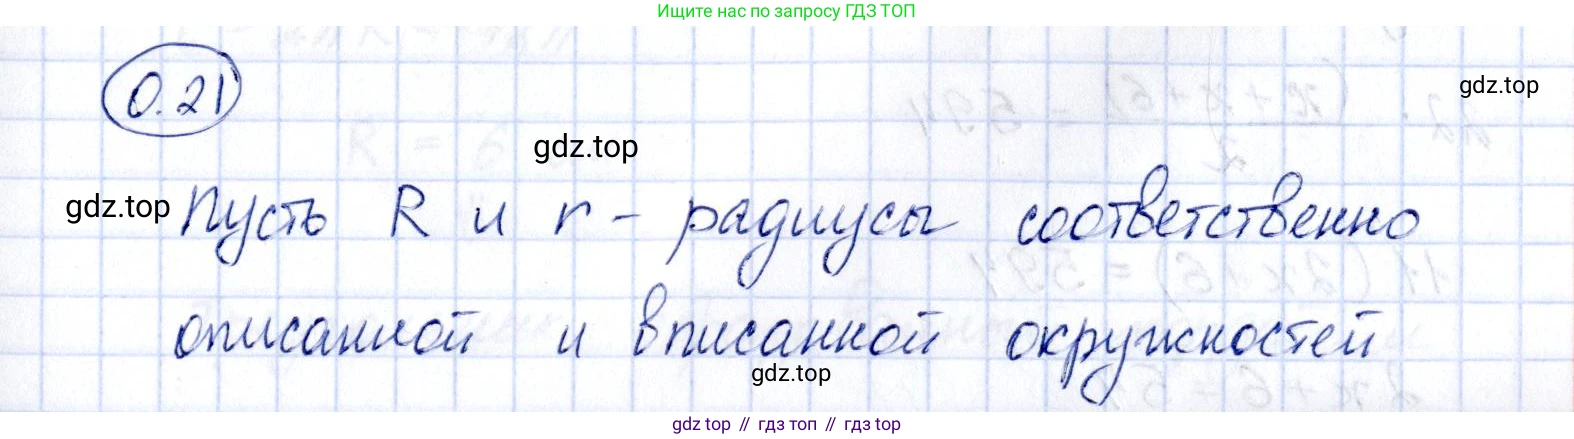 Ищите нас по запросу ГДЗ ТОП
0.21
gdz.top
gdz.top
gdz.top Пусть R и r - радиусы соответственно
описанной и вписанной окружностей
gdz.top
gdz top // гдз топ // гдз top